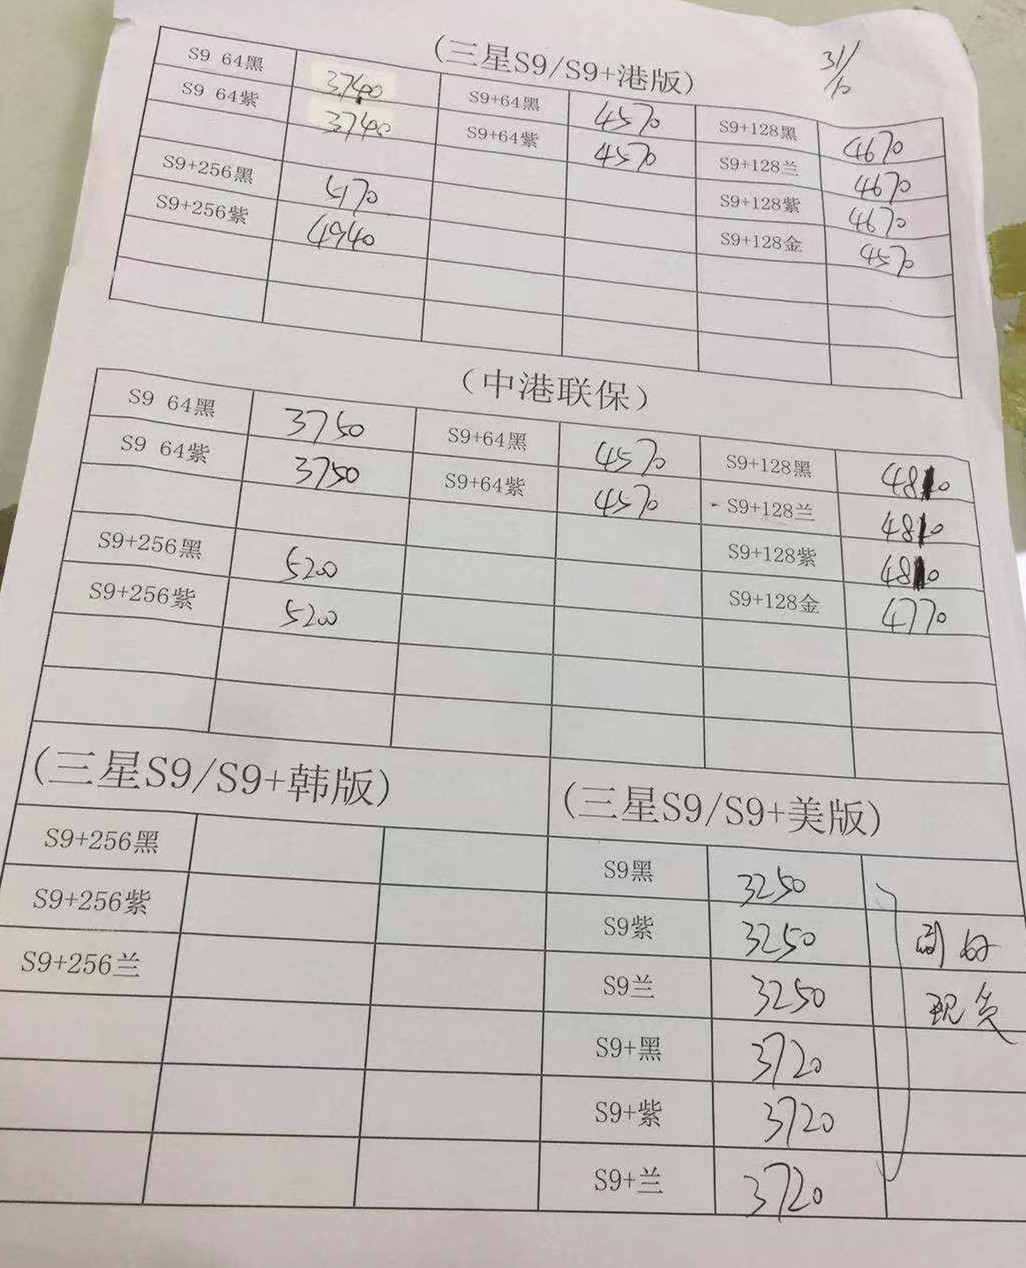 (三星S9/S9+港版)
31/10
S9 64黑 3740 S9+64黑 4570 S9+128黑 4670
S9 64紫 3740 S9+64紫 4570 S9+128兰 4670
S9+128紫 4670
S9+256黑 5170 S9+128金 4570
S9+256紫 4940
(中港联保)
S9 64黑 3750 S9+64黑 4570 S9+128黑 4810
S9 64紫 3750 S9+64紫 4570 S9+128兰 4810
S9+128紫 4810
S9+256黑 5200 S9+128金 4770
S9+256紫 5200
(三星S9/S9+韩版) (三星S9/S9+美版)
S9+256黑 S9黑 3250
S9+256紫 S9紫 3250
S9+256兰 S9兰 3250 现货
S9+黑 3720
S9+紫 3720
S9+兰 3720